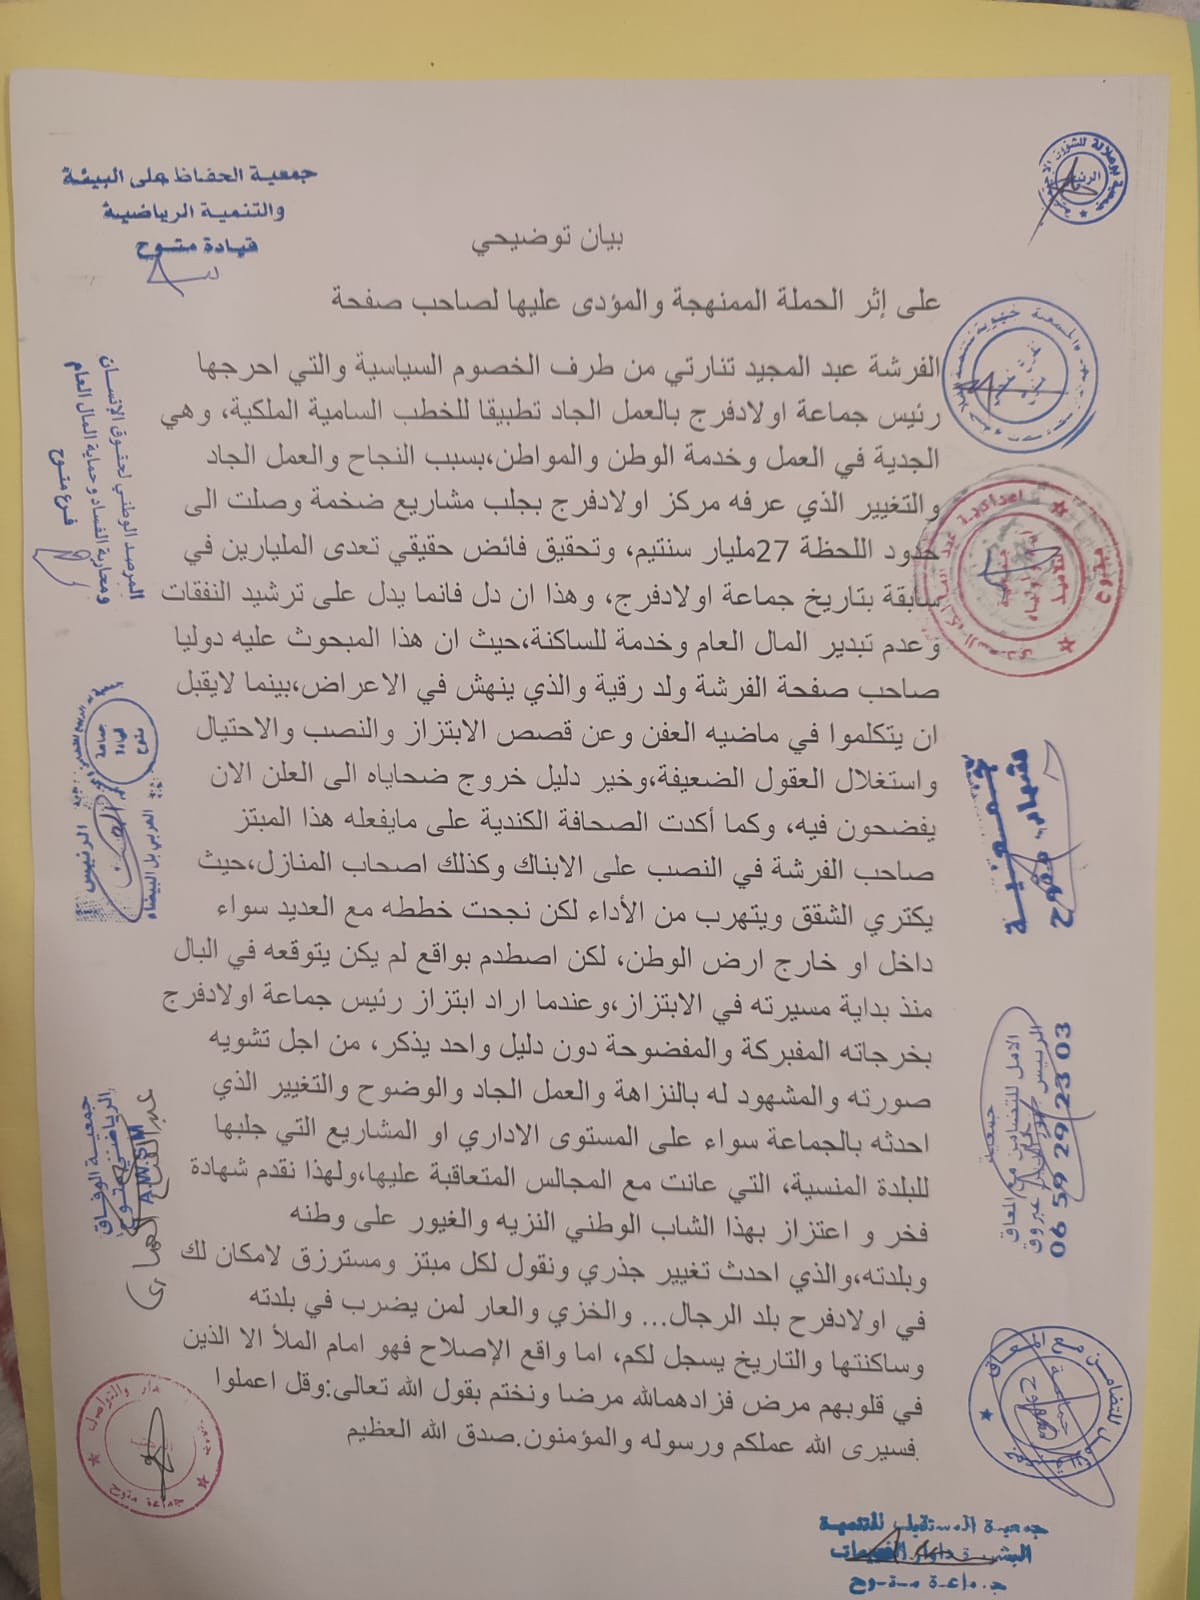 جمعية الحفاظ على البيئة
والتنمية الرياضية
قيادة متوح
بيان توضيحي
على إثر الحملة الممنهجة والمؤدى عليها لصاحب صفحة
الفرشة عبد المجيد تنارتي من طرف الخصوم السياسية والتي احرجها
رئيس جماعة اولادفرج بالعمل الجاد تطبيقا للخطب السامية الملكية، وهي
الجدية في العمل وخدمة الوطن والمواطن،بسبب النجاح والعمل الجاد
والتغيير الذي عرفه مركز اولادفرج بجلب مشاريع ضخمة وصلت الى
حدود اللحظة 27مليار سنتيم، وتحقيق فائض حقيقي تعدى المليارين في
سابقة بتاريخ جماعة اولادفرج، وهذا ان دل فانما يدل على ترشيد النفقات
وعدم تبدير المال العام وخدمة للساكنة،حيث ان هذا المبحوث عليه دوليا
صاحب صفحة الفرشة ولد رقية والذي ينهش في الاعراض،بينما لايقبل
ان يتكلموا في ماضيه العفن وعن قصص الابتزاز والنصب والاحتيال
واستغلال العقول الضعيفة،وخير دليل خروج ضحاياه الى العلن الان
يفضحون فيه، وكما أكدت الصحافة الكندية على مايفعله هذا المبتز
صاحب الفرشة في النصب على الابناك وكذلك اصحاب المنازل،حيث
يكتري الشقق ويتهرب من الأداء لكن نجحت خططه مع العديد سواء
داخل او خارج ارض الوطن، لكن اصطدم بواقع لم يكن يتوقعه في البال
منذ بداية مسيرته في الابتزاز،وعندما اراد ابتزاز رئيس جماعة اولادفرج
بخرجاته المفبركة والمفضوحة دون دليل واحد يذكر، من اجل تشويه
صورته والمشهود له بالنزاهة والعمل الجاد والوضوح والتغيير الذي
احدثه بالجماعة سواء على المستوى الاداري او المشاريع التي جلبها
للبلدة المنسية، التي عانت مع المجالس المتعاقبة عليها،ولهذا نقدم شهادة
فخر و اعتزاز بهذا الشاب الوطني النزيه والغيور على وطنه
وبلدته،والذي احدث تغيير جذري ونقول لكل مبتز ومسترزق لامكان لك
في اولادفرح بلد الرجال... والخزي والعار لمن يضرب في بلدته
وساكنتها والتاريخ يسجل لكم، اما واقع الإصلاح فهو امام الملأ الا الذين
في قلوبهم مرض فزادهمالله مرضا ونختم بقول الله تعالى:وقل اعملوا
فسيرى الله عملكم ورسوله والمؤمنون.صدق الله العظيم
المرصد الوطني لحقوق الإنسان
ومحاربة الفساد وحماية المال العام
فرع متوح
الرئيس
جمعية الوفاق
الرياضي متوح
A.W.S.M
جمعية
الامل للتضامن مع المعاق
06 59 29 23 03
جمعية المستقبل للتنمية
جماعة متوح